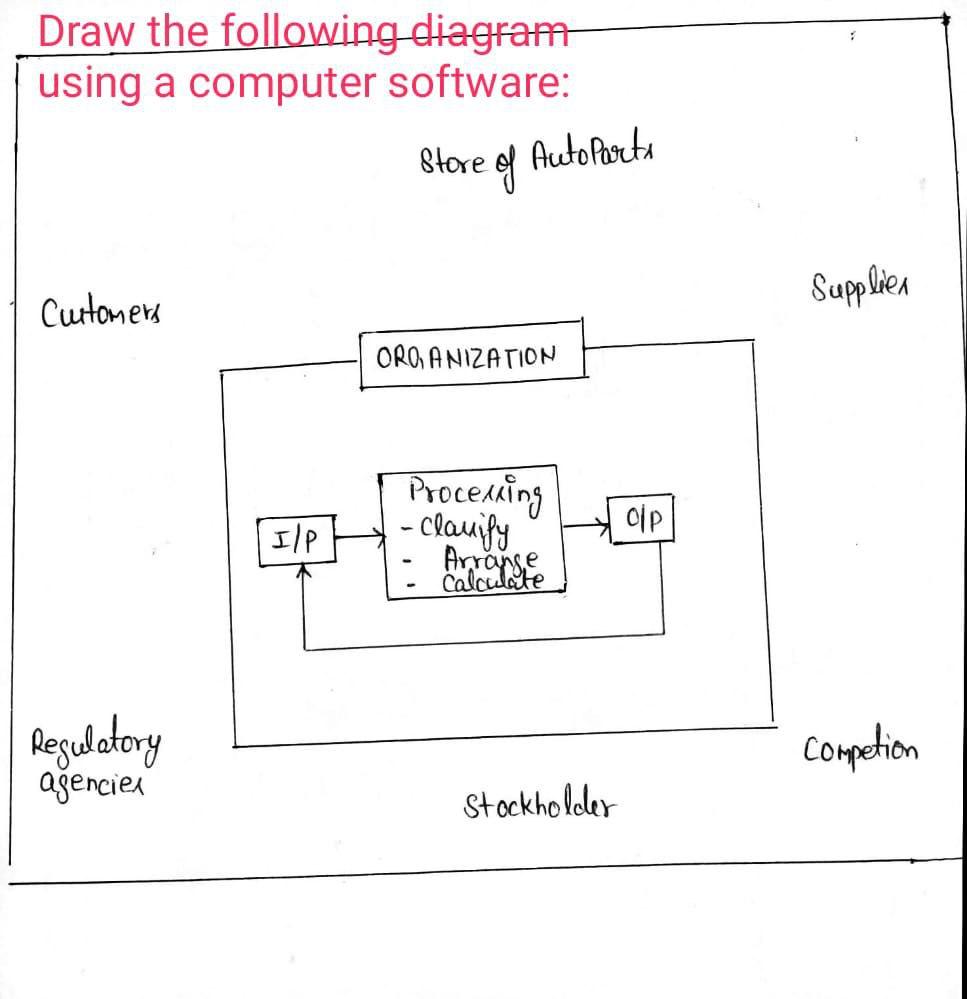 Draw the following diagram
using a computer software:
Store of AutoParts
Customers
Supplies
ORGANIZATION
I/P
Processing
- Classify
- Arrange
- Calculate
O/P
Regulatory
agencies
Competion
Stockholder